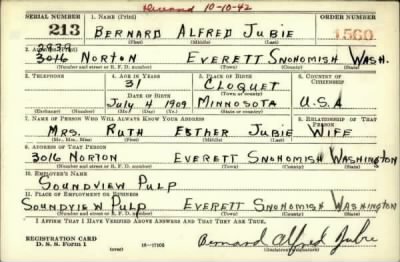 Deceased 10-10-42
SERIAL NUMBER 1. NAME (Print) ORDER NUMBER
213 BERNARD ALFRED JUBIE 1560
(First) (Middle) (Last)
2. ADDRESS (Print)
2939
3016 NORTON EVERETT SNOHOMISH WASH.
(Number and street or R. F. D. number) (Town) (County) (State)
3. TELEPHONE 4. AGE IN YEARS 5. PLACE OF BIRTH 6. COUNTRY OF CITIZENSHIP
31 CLOQUET
DATE OF BIRTH (Town or county)
JULY 4 1909 MINNOSOTA U.S.A
(Exchange) (Number) (Mo.) (Day) (Yr.) (State or country)
7. NAME OF PERSON WHO WILL ALWAYS KNOW YOUR ADDRESS 8. RELATIONSHIP OF THAT PERSON
MRS. RUTH ESTHER JUBIE WIFE
(Mr., Mrs., Miss) (First) (Middle) (Last)
9. ADDRESS OF THAT PERSON
3016 NORTON EVERETT SNOHOMISH WASHINGTON
(Number and street or R. F. D. number) (Town) (County) (State)
10. EMPLOYER'S NAME
SOUNDVIEW PULP
11. PLACE OF EMPLOYMENT OR BUSINESS
SOUNDVIEW PULP EVERETT SNOHOMISH WASHINGTON
(Number and street or R. F. D. number) (Town) (County) (State)
I AFFIRM THAT I HAVE VERIFIED ABOVE ANSWERS AND THAT THEY ARE TRUE.
REGISTRATION CARD
D. S. S. Form 1 (over) 16-17105 Bernard Alfred Jubie
(Registrant's signature)